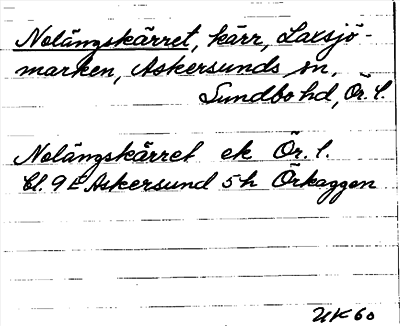 Nolängskärret, kärr, Laxsjö-
marken, Askersunds sn,
Sundbo hd, Ör. l.
Nolängskärret ek Ör. l.
Bl. 9E Askersund 5h Örkaggen
UK 60